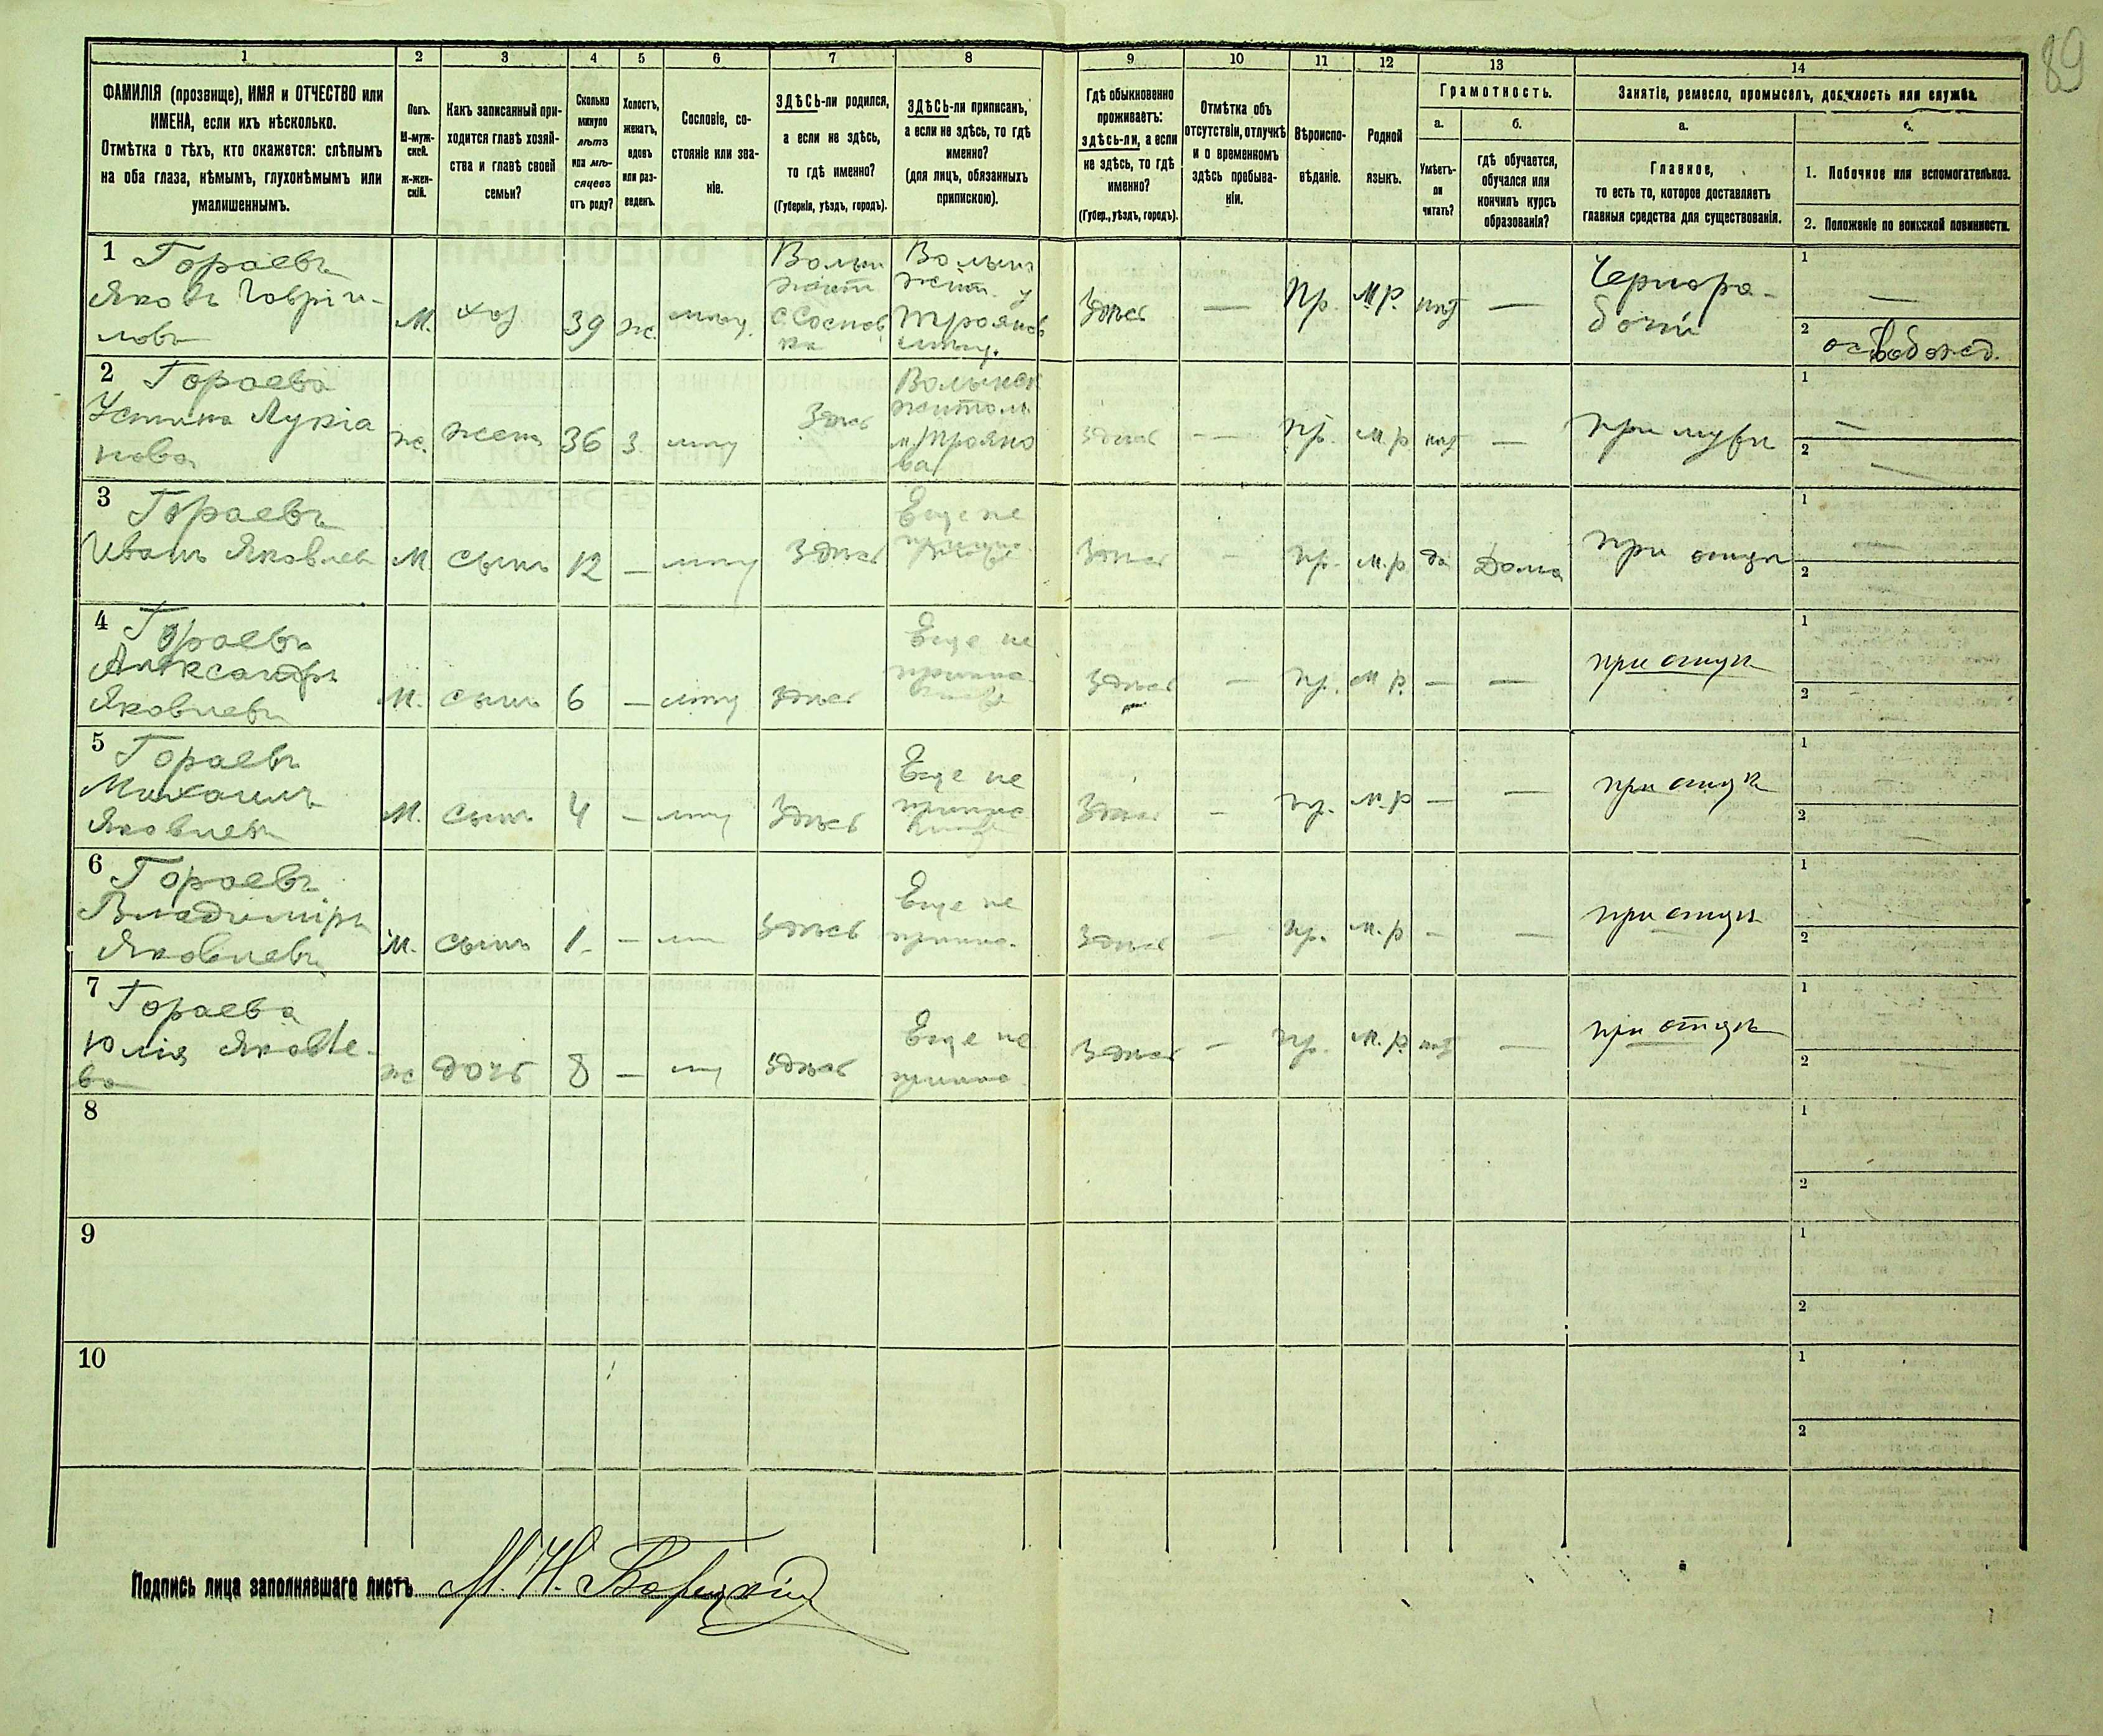 89
1
2
3
4
5
6
7
8
9
10
11
12
13
14
ФАМИЛІЯ (прозвище), ИМЯ и ОТЧЕСТВО или
ИМЕНА, если ихъ нѣсколько.
Отмѣтка о тѣхъ, кто окажется: слѣпымъ
на оба глаза, нѣмымъ, глухонѣмымъ или
умалишеннымъ.
Полъ.
М-муж-
ской.
ж-жен-
скій.
Какъ записанный при-
ходится главѣ хозяй-
ства и главѣ своей
семьи?
Сколько
минуло
лѣтъ
или мѣ-
сяцевъ
отъ роду?
Холостъ,
женатъ,
вдовъ
или раз-
веденъ.
Сословіе, со-
стояніе или зва-
ніе.
ЗДѢСЬ-ли родился,
а если не здѣсь,
то гдѣ именно?
(Губернія, уѣздъ, городъ).
ЗДѢСЬ-ли приписанъ,
а если не здѣсь, то гдѣ
именно?
(для лицъ, обязанныхъ
припискою).
Гдѣ обыкновенно
проживаетъ:
здѣсь-ли, а если
не здѣсь, то гдѣ
именно?
(Губер., уѣздъ, городъ).
Отмѣтка объ
отсутствіи, отлучкѣ
и о временномъ
здѣсь пребыва-
ніи.
Вѣроиспо-
вѣданіе.
Родной
языкъ.
Грамотность.
а.
б.
Умѣетъ-
ли
читать?
гдѣ обучается,
обучался или
кончилъ курсъ
образованія?
Занятіе, ремесло, промыселъ, должность или служба.
а.
Главное,
то есть то, которое доставляетъ
главныя средства для существованія.
1. Побочное или вспомогательное.
2. Положеніе по воинской повинности.
1 Гораевъ
Яковъ Гавріи-
ловъ
М.
хоз
39
ж.
Волын
Жит
с. Соснов
ка
Волын
Жит. у
Троянов
Здѣсь
—
Пр.
М.Р.
нѣт
—
Чернора-
бочій
1
—
2
освобожд.
2 Гораева
Устина Лукіа
нова
ж.
жена
36
З.
Здѣсь
Волынск
Житом
м. Трояно
ва
здѣсь
—
Пр.
М.р
нѣт
—
при мужѣ
1
—
2
—
3 Гораевъ
Иванъ Яковлев
М
сынъ
12
—
Здѣсь
Еще не
Здѣсь
—
пр.
М.р.
да
Дома
при отцѣ
1
—
2
4 Гораевъ
Александръ
Яковлевъ
М.
сынъ
6
—
здѣсь
Еще не
Здѣсь
—
пр.
М р.
—
—
при отцѣ
1
2
5 Гораевъ
Михаилъ
Яковлевъ
М.
сынъ
4
—
Здѣсь
Еще не
Здѣсь
—
пр.
М.р
—
—
при отцѣ
1
2
6 Гораевъ
Владиміръ
Яковлевъ
М.
сынъ
1
—
Здѣсь
Еще не
припис.
Здѣсь
—
пр.
М.р
—
—
при отцѣ
1
2
7 Гораева
Юлія Яковле-
ва
ж
дочь
8
—
здѣсь
Еще не
припис
Здѣсь
—
пр.
М.р.
нѣт
—
при отцѣ
1
2
8
1
2
9
1
2
10
1
2
Подпись лица заполнявшаго листъ М. Н.